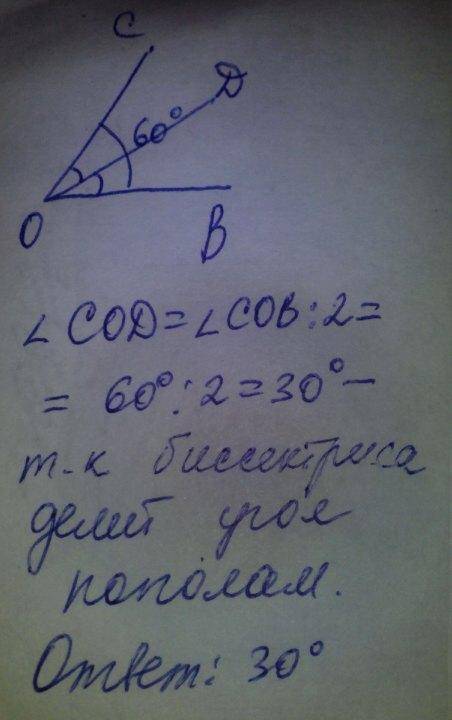 C
D
60°
O
B
∠COD=∠COB:2=
= 60°:2=30°–
т-к биссектриса
делит угол
пополам.
Ответ: 30°